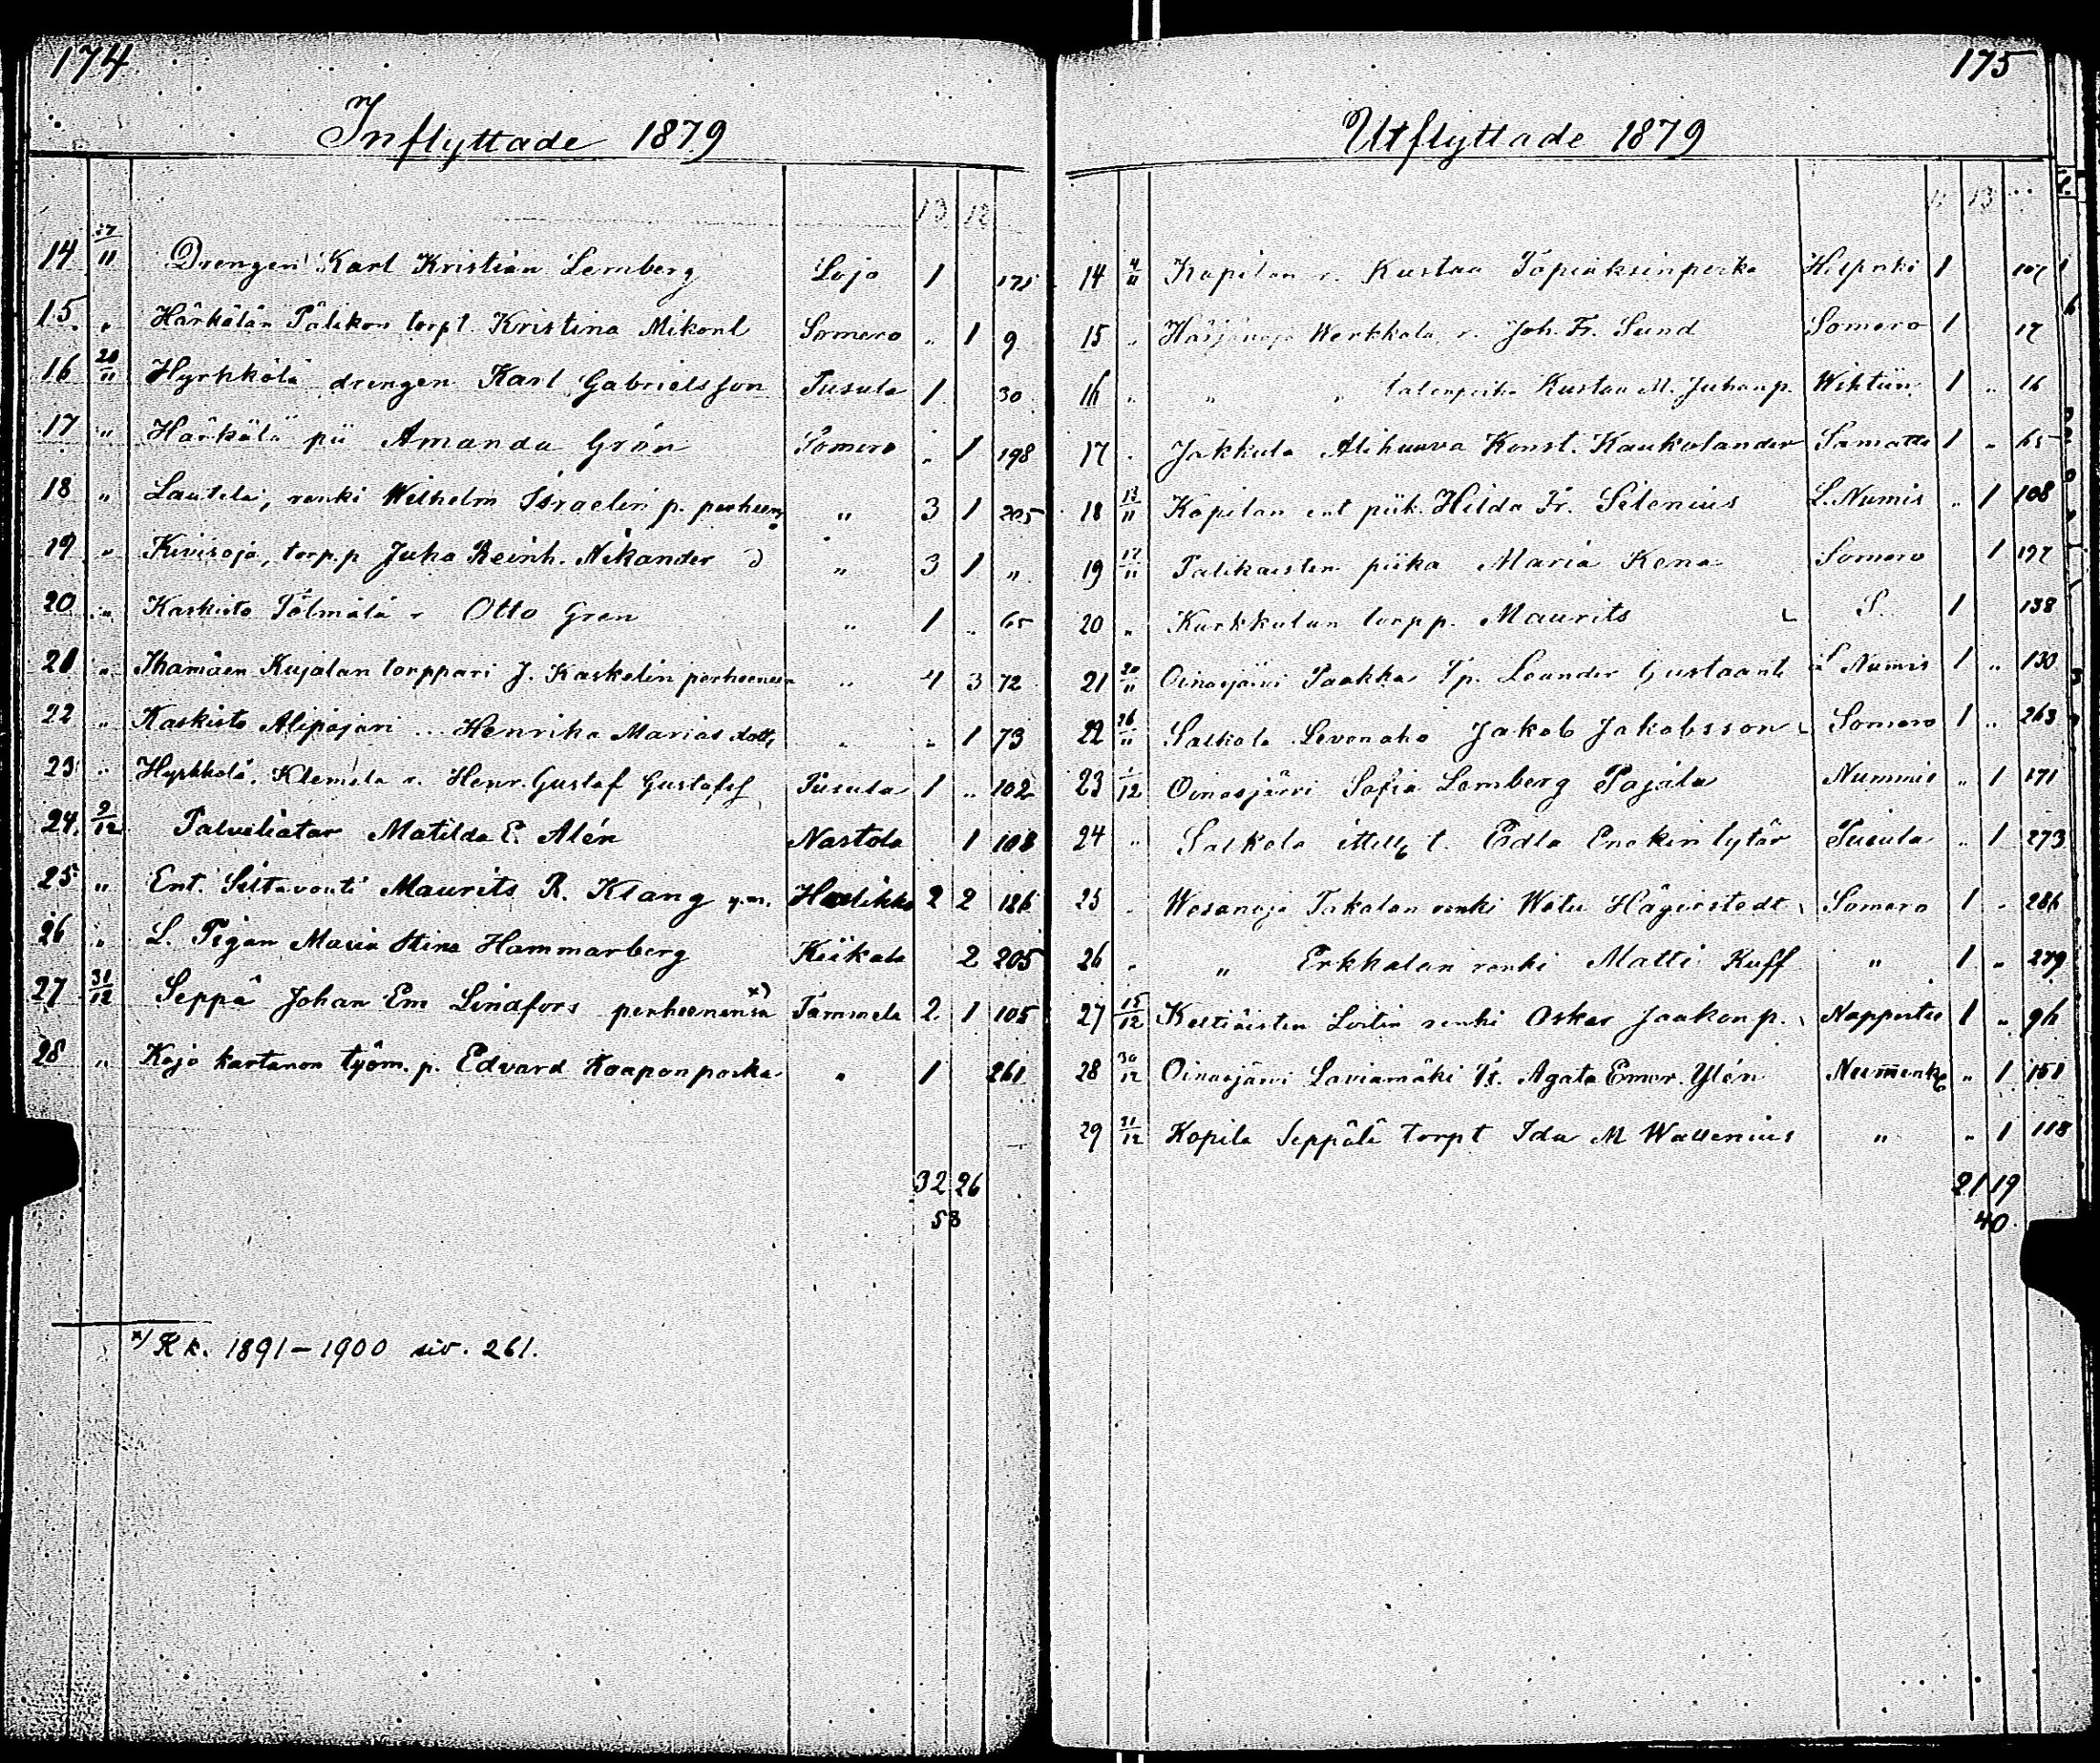 174
Inflyttade 1879
13 12
14 27/11 Drengen Karl Kristian Lemberg Lojo 1 171
15 " Härkälän Pälikon torpt. Kristina Mikont Somero " 1 9
16 20/11 Hyrkkölä drengen Karl Gabrielsson Tusula 1 30
17 " Härkälä pii Amanda Grön Somero " 1 198
18 " Lautela, renki Wilhelm Israelin p. perheen " 3 1 205
19 " Kivisoja, torp.p Juha Reinh. Nikander " 3 1 "
20 " Kaskisto Tölmälä r Otto Gren " 1 " 65
21 " Ihamäen Kujalan torppari J. Kaskelin perheeneen " 4 3 72
22 " Kaskisto Alipajari Henrika Marias dottr " " 1 73
23 " Hyrkkölä, Klemela r. Henr. Gustaf Gustafsf Tusula 1 " 102
24 9/12 Palveliatar Matilda E. Alén Nastola 1 108
25 " Ent. Siltavouti Maurits R. Klang y.m. Halikko 2 2 186
26 " L. Pigan Maria Stina Hammarberg Kiikala 2 205
27 31/12 Seppä Johan Em Lindfors perheenensä x) Tammela 2 1 105
28 " Kojo kartanon työm. p. Edvard Kaaponpoika " 1 261
32 26
58
x) Rk. 1891-1900 siv. 261.
175
Utflyttade 1879
13
14 4/11 Kapilan r. Kustaa Topiaksenpoika Helsinki 1 107
15 " Härjänoja Werkkala r. Joh. Fr. Sund Somero 1 17
16 " " " talonpoika Kustaa M. Juhanp. Wihtiin 1 " 16
17 " Jakkula Alihuova Konst. Kaukolander Samatti 1 " 65
18 13/11 Kapilan ent piik. Hilda Fr. Selenius L. Numis " 1 108
19 17/11 Palikaisten piika Maria Kena Somero 1 197
20 " Kurkkulan torpp. Maurits S. 1 138
21 20/11 Oinasjärvi Paakka Tp. Leander Gustaant L Numis 1 " 130
22 26/11 Salkola Levonaho Jakob Jakobsson Somero 1 " 263
23 1/12 Oinasjärvi Sofia Lemberg Pajala Nummis " 1 171
24 " Salkola t. Edla Enokin tytär Tusula " 1 273
25 " Wesanoja Takalan renki Watu Hägerstedt Somero 1 " 286
26 " " Erkkalan renki Matti Ruff " 1 " 279
27 15/12 Keltiäisten Loitin renki Oskar Jaakon p. Noppoitee 1 " 96
28 30/12 Oinasjärvi Laviamäki Agata Emer. Ylén " 1 151
29 31/12 Kopila Seppälä torpt Ida M Wallenius " " 1 118
21 19
40